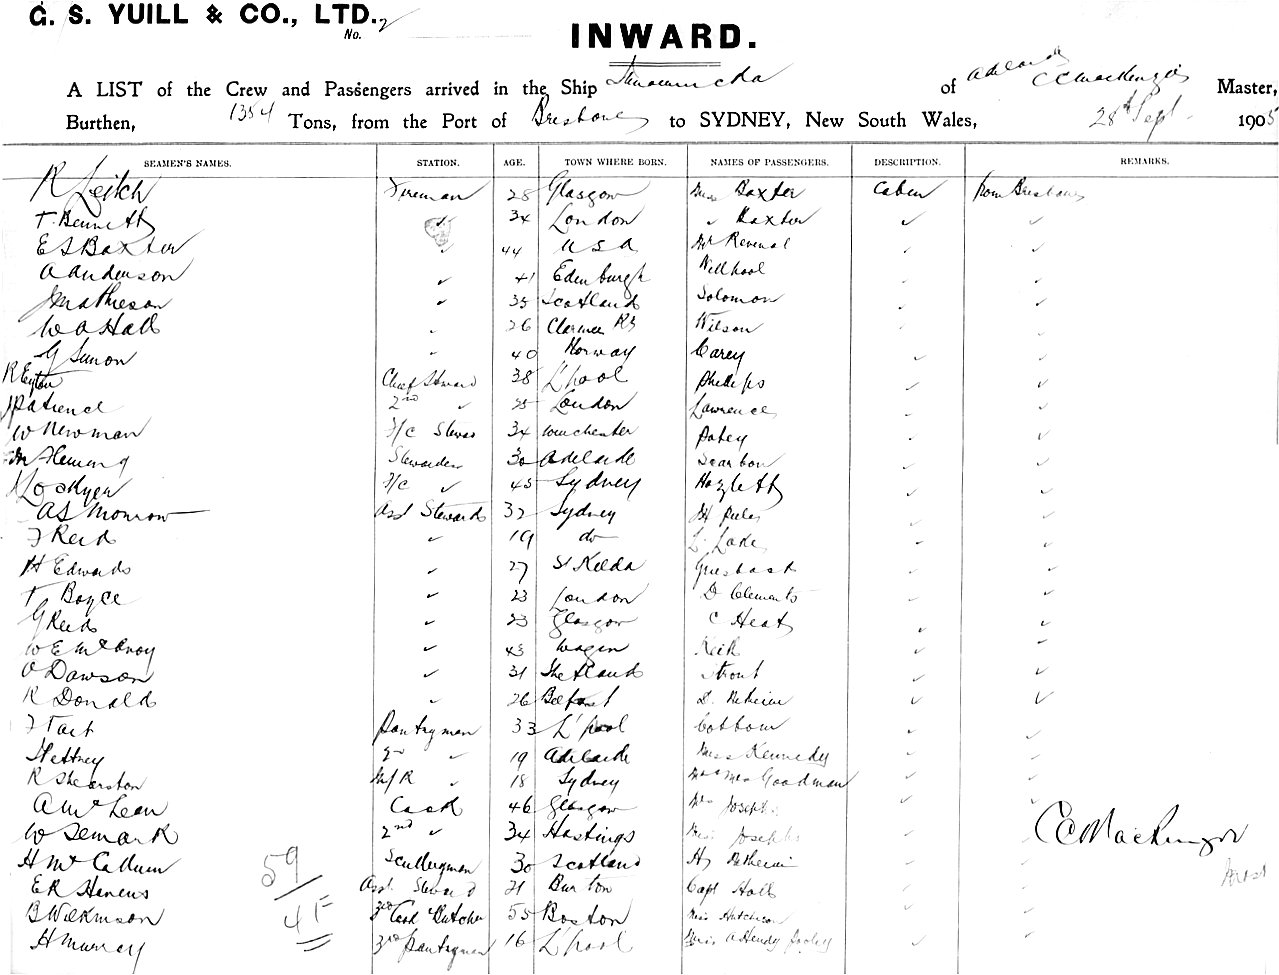 G. S. YUILL & CO., LTD.
No. 2
INWARD.
A LIST of the Crew and Passengers arrived in the Ship of Adelaide C C Mackenzie Master,
Burthen, 1354 Tons, from the Port of Brisbane to SYDNEY, New South Wales, 28th Sept 1905
SEAMEN'S NAMES. STATION. AGE. TOWN WHERE BORN. NAMES OF PASSENGERS. DESCRIPTION. REMARKS.
R Leitch Fireman 28 Glasgow Miss Baxter Cabin from Brisbane
T. Bennett ✓ 34 London " Baxter ✓ ✓
E S Baxter ✓ 44 U S A Mr ✓ ✓
A Anderson ✓ 41 Edenburgh ✓ ✓
J Mathieson ✓ 35 Scotland Solomon ✓ ✓
W A Hall ✓ 26 Clarence Wilson ✓ ✓
G Simon ✓ 40 Norway Carey ✓ ✓
R Eyton Chief Steward 38 L'pool Phillips ✓ ✓
J Patience 2nd ✓ 25 London Lawrence ✓ ✓
W Newman F/C Stewas 34 Winchester ✓ ✓
M Fleming Stewardess 30 Adelaide ✓ ✓
Lockyer F/C ✓ 45 Sydney Hazlett ✓ ✓
A S Monrow Asst Stewards 32 Sydney ✓ ✓
F Reid ✓ 19 do L. Lake ✓ ✓
H Edwards ✓ 27 St Kilda ✓ ✓
T Boyce ✓ 23 London D Clements ✓ ✓
G Reid ✓ 23 Glasgow C Heat ✓ ✓
W E McAvoy ✓ 43 Keith ✓ ✓
O Dawson ✓ 31 Shetland Strout ✓ ✓
R Donald ✓ 26 Belfast D. ✓ ✓
F Tait Pantryman 33 L'pool Cottom ✓ ✓
2nd ✓ 19 Adelaide Miss Kennedy ✓ ✓
R Shearston M/R ✓ 18 Sydney Mr & Mrs Goodman ✓ ✓
A McLean Cook 46 Glasgow Mr Joseph ✓ ✓
W Semark 2nd ✓ 34 Hastings Miss Josephs ✓ C C Mackenzie
H McCallum Scullergman 30 Scotland Hy ✓ ✓
E R Stevens Asst Steward 21 Burton Capt Hall ✓ ✓
B Wilkinson 3rd Cook Butcher 55 Boston Miss Hutchison ✓ ✓
H Murrey 3rd Pantryman 16 L'pool Miss A Hendy ✓ ✓
59
41